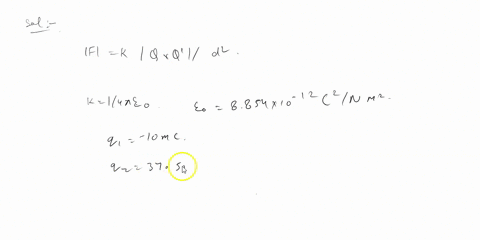 Sol :-
|F| = K | Q x Q'| / d²
K = 1/4πε₀ ε₀ = 8.854 x 10⁻¹² C²/N m².
q₁ = -10 m C.
q₂ = 37. 5